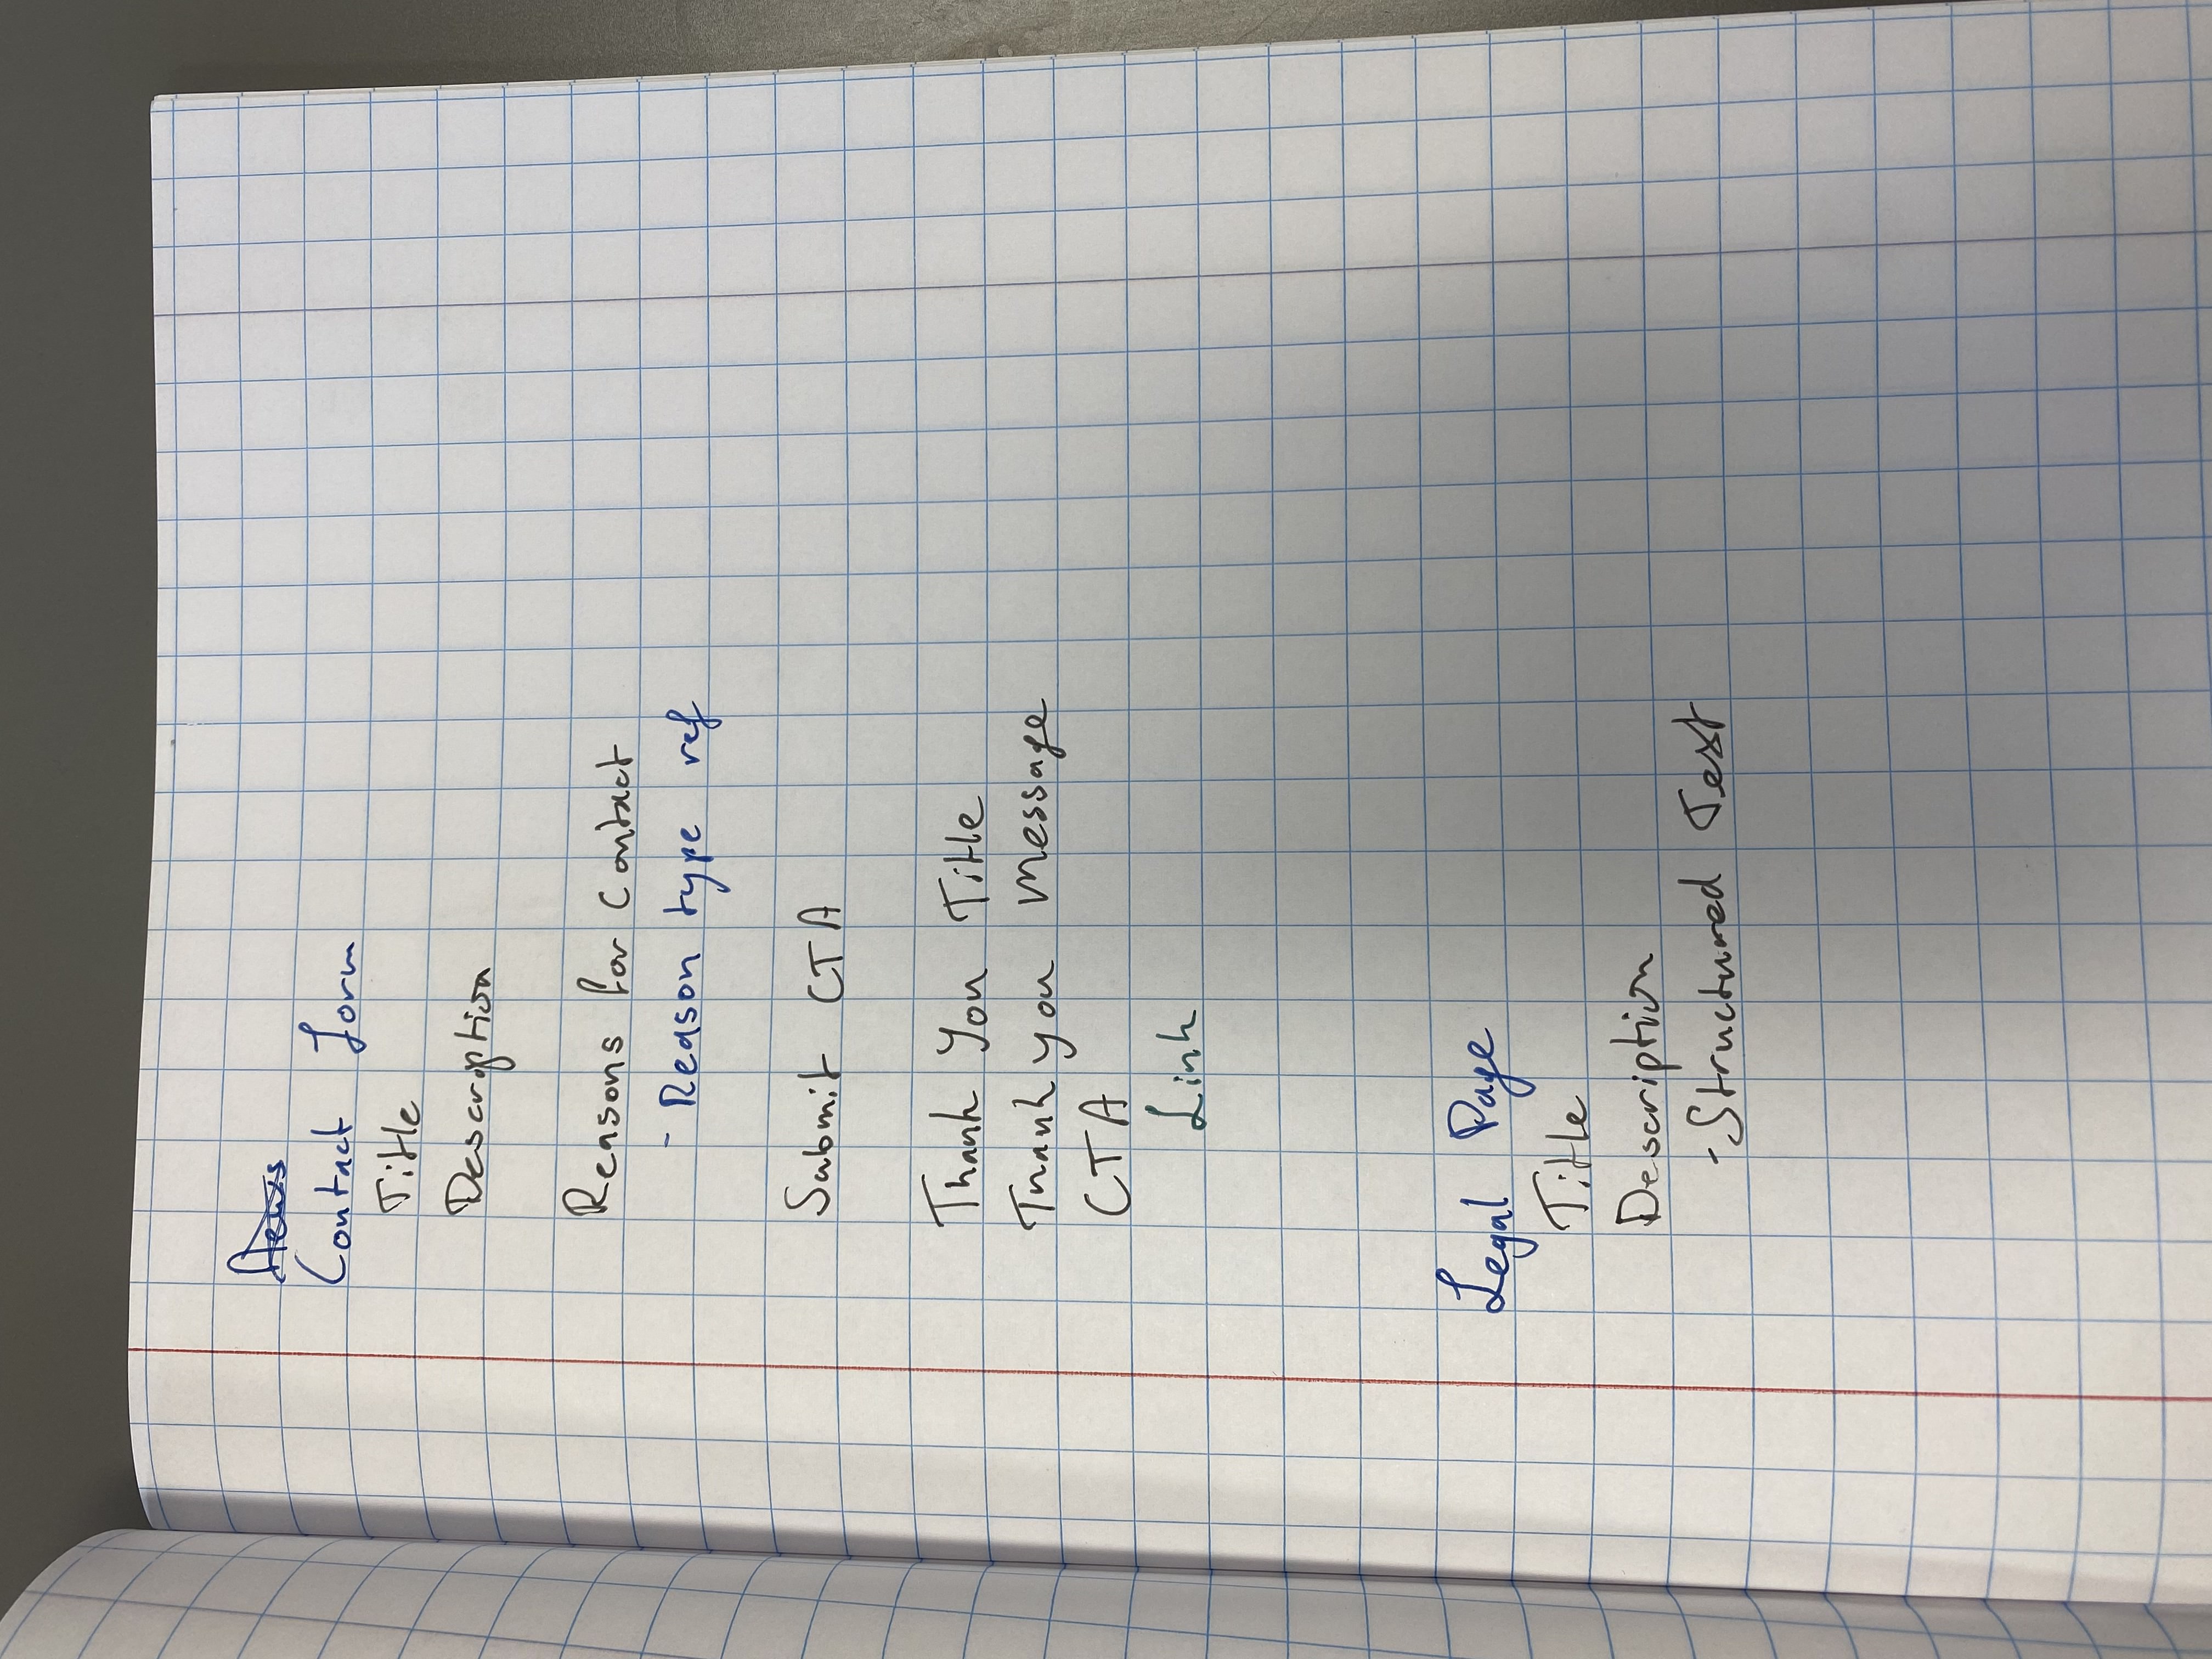 News
Contact Form
Title
Description
Reasons for Contact
- Reason type ref
Submit CTA
Thank You Title
Thank you Message
CTA
Link
Legal Page
Title
Description
- Structured Text